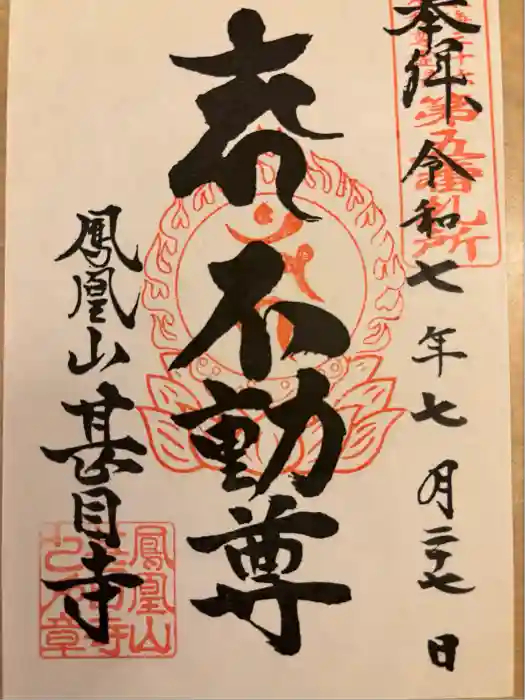 奉拝 令和七年七月二十七日
第五番札所
赤不動尊
鳳凰山 甚目寺
鳳凰山